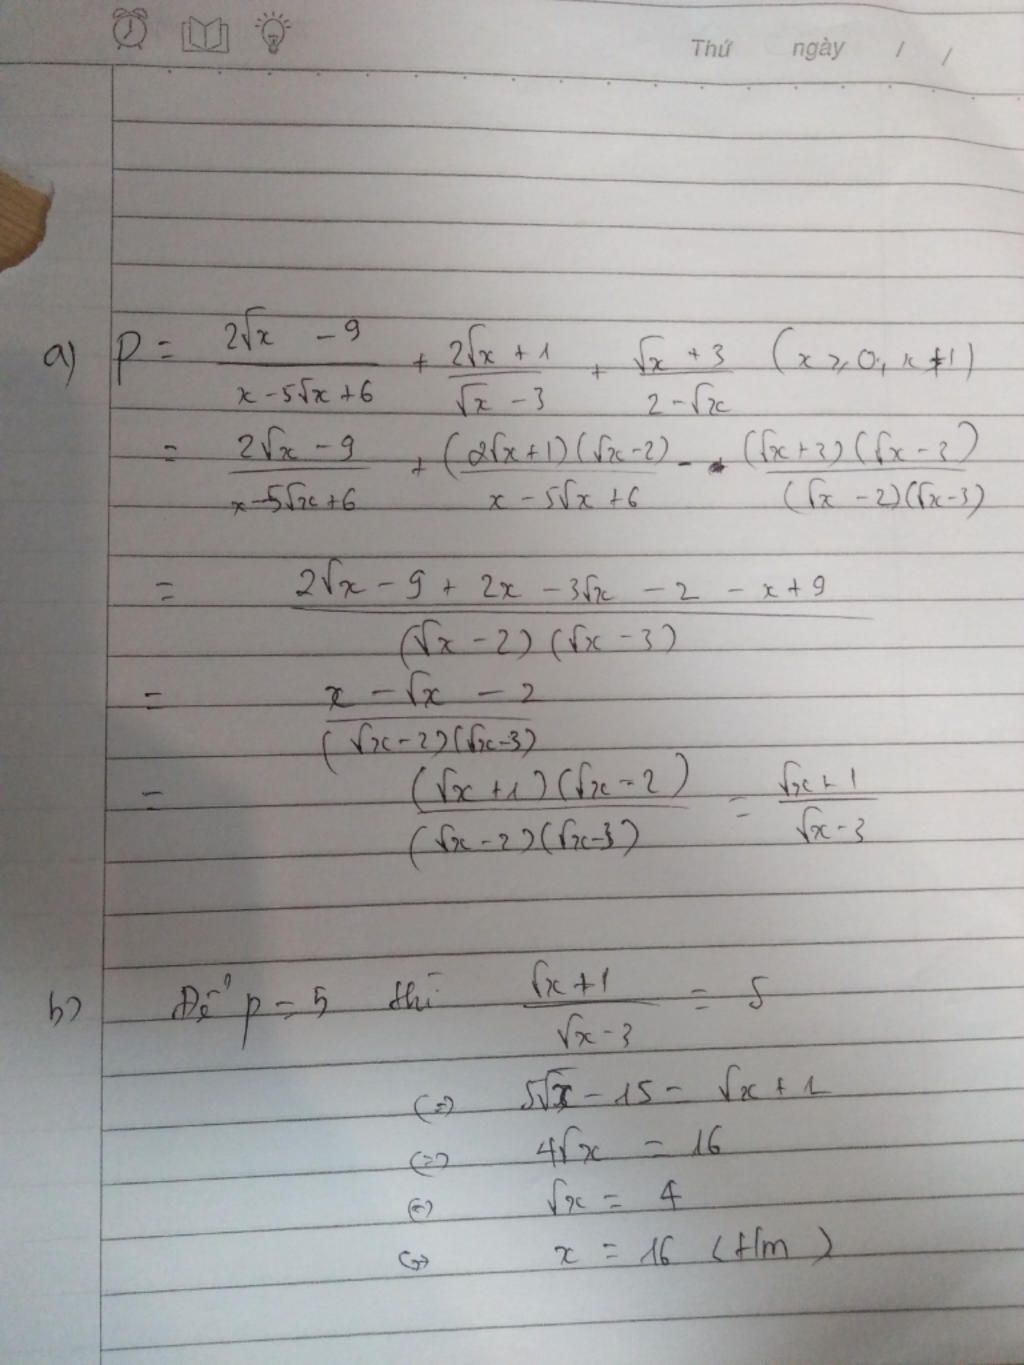 Thứ ngày / /
a) P = (2√x - 9)/(x - 5√x + 6) + (2√x + 1)/(√x - 3) + (√x + 3)/(2 - √x) (x ≥ 0, x ≠ 1)
= (2√x - 9)/(x - 5√x + 6) + ((2√x + 1)(√x - 2))/(x - 5√x + 6) - ((√x + 3)(√x - 3))/((√x - 2)(√x - 3))
= (2√x - 9 + 2x - 3√x - 2 - x + 9)/((√x - 2)(√x - 3))
= (x - √x - 2)/((√x - 2)(√x - 3))
= ((√x + 1)(√x - 2))/((√x - 2)(√x - 3)) = (√x + 1)/(√x - 3)
b) Để P = 5 thì (√x + 1)/(√x - 3) = 5
(=) 5√x - 15 = √x + 1
(=) 4√x = 16
(=) √x = 4
(=) x = 16 (t/m)